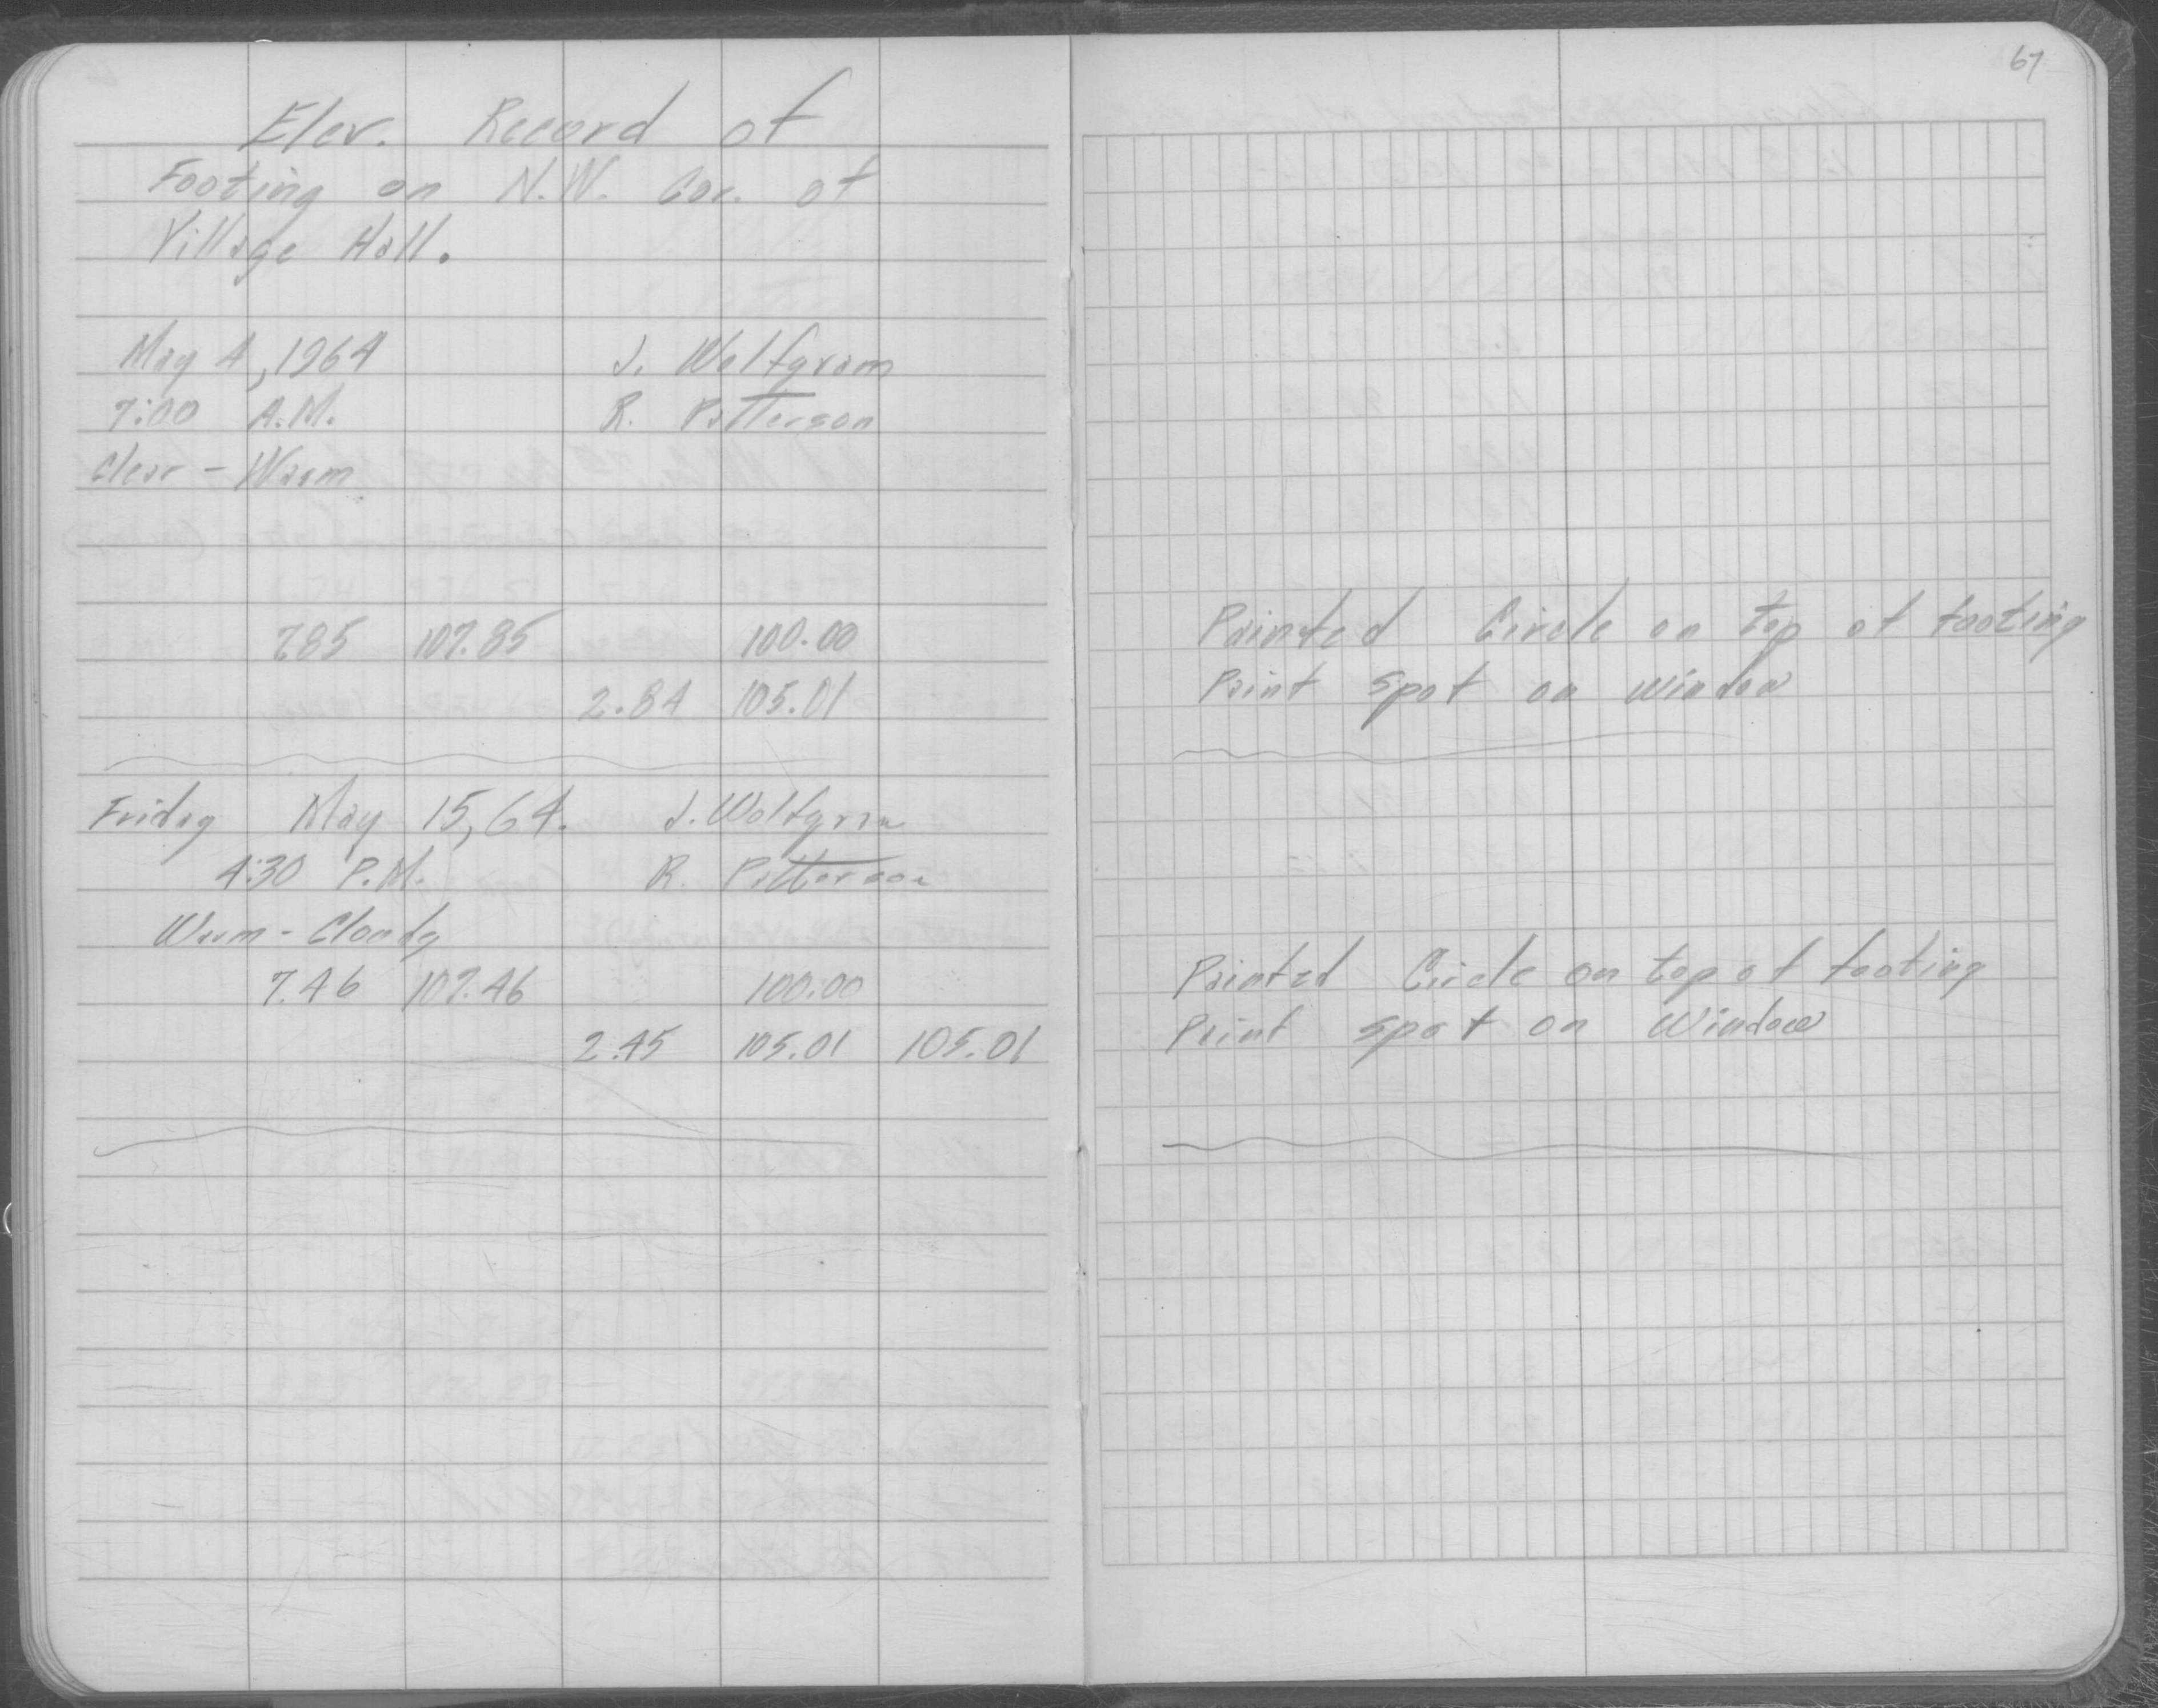 Elev. Record of
Footing on N.W. Cor. of
Village Hall.
May 4, 1964 J. Wolfgram
7:00 A.M. R. Patterson
Clear - Warm
7.85 107.85 100.00
2.84 105.01
Friday May 15, 64. J. Wolfgram
4:30 P.M. R. Patterson
Warm - Cloudy
7.46 107.46 100.00
2.45 105.01 105.01
67
Painted Circle on top of footing
Paint spot on window
Painted Circle on top of footing
Paint spot on Window